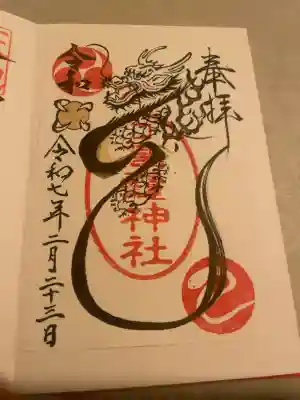 奉拝
神社
令和
令和七年二月二十三日